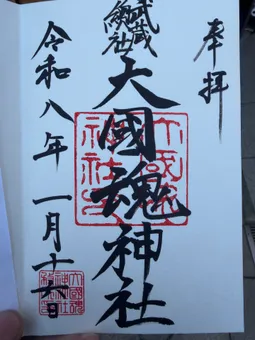 奉拝
武蔵
総社
大國魂神社
令和八年一月十六日
大國魂
神社印